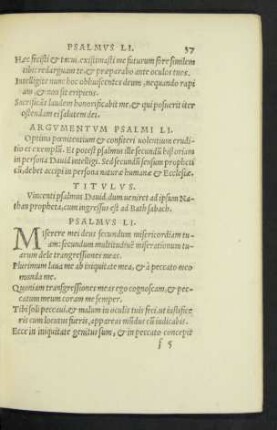 PSALMVS LI. 57
Hæc fecisti & tacui, existimasti me futurum fore similem
tibi: redarguam te, & præparabo ante oculos tuos.
Intelligite nunc hoc obliuiscentes deum, ne quando rapi
am, & non sit eripiens.
Sacrificās laudem honorificabit me, & qui posuerit iter
ostendam ei salutem dei.
ARGVMENTVM PSALMI LI.
Optima pœnitentium & confiteri volentium erudi-
tio et exemplū. Et potest psalmus ille secundū historiam
in persona Dauid intelligi. Sed secundū sensum propheti
cū, debet accipi in persona naturæ humanæ & Ecclesiæ.
TITVLVS.
Vincenti psalmus Dauid, dum ueniret ad ipsum Na-
than propheta, cum ingressus est ad Bathsabach.
PSALMVS LI.
Miserere mei deus secundum misericordiam tu-
am: secundum multitudinē miserationum tu-
arum dele transgressiones meas.
Plurimum laua me ab iniquitate mea, & à peccato meo
munda me.
Quoniam transgressiones meas ego cognoscam, & pec-
catum meum coram me semper.
Tibi soli peccaui, & malum in oculis tuis feci, ut iustifice
ris cum locutus fueris, appareas mūdus cū iudicabis.
Ecce in iniquitate genitus sum, & in peccato concepit
f 5